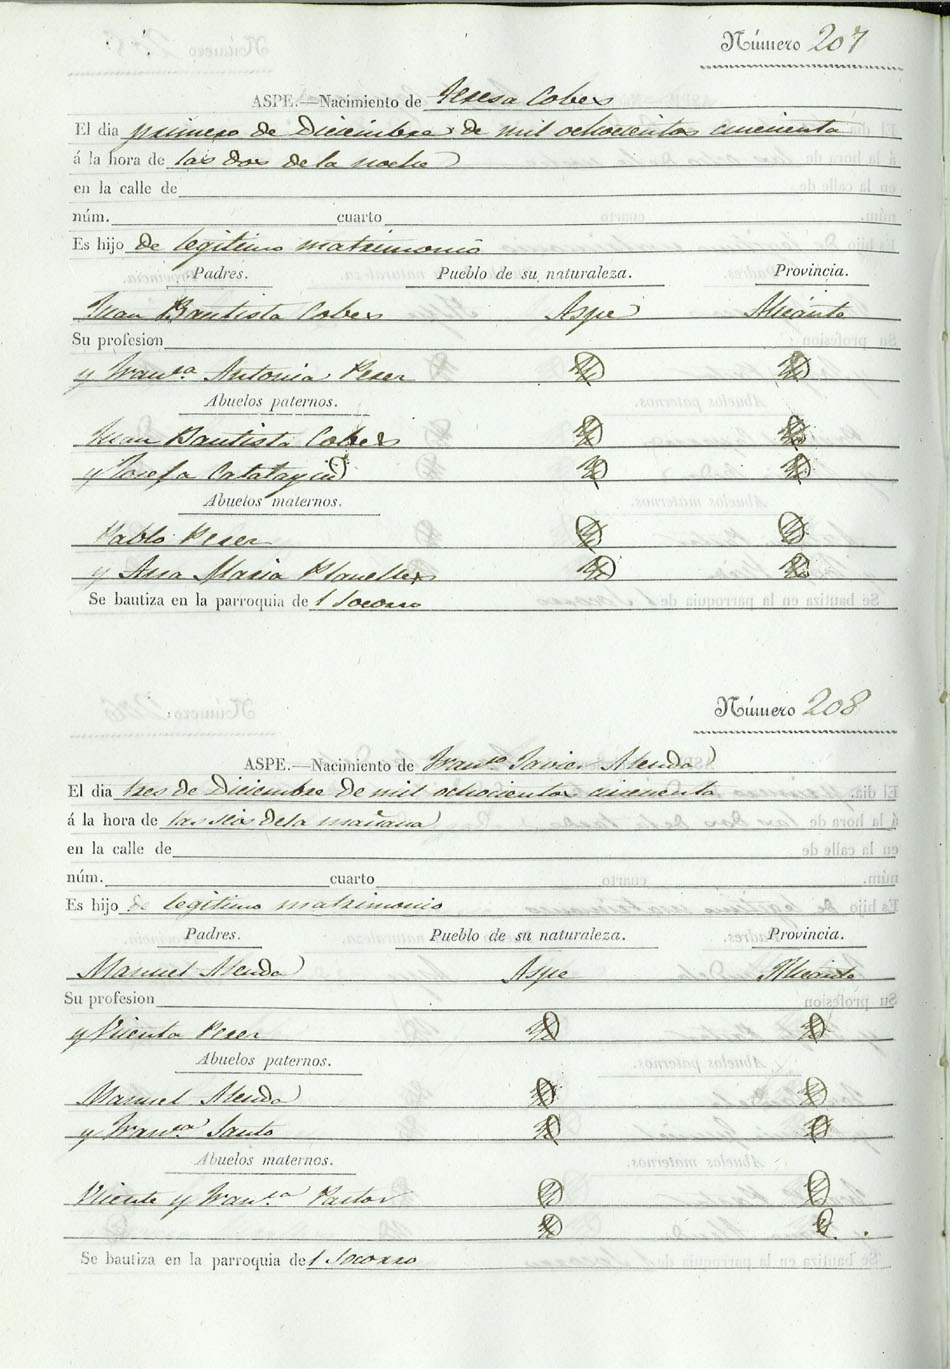 Número 207
ASPE.—Nacimiento de Teresa Cobes
El dia primero de Diciembre de mil ochocientos cincuenta
á la hora de las dos de la noche
en la calle de
núm. cuarto
Es hijo de legitimo matrimonio
Padres. Pueblo de su naturaleza. Provincia.
Juan Bautista Cobes Aspe Alicante
Su profesion
y Fran.ca Antonia Perez
Abuelos paternos.
Juan Bautista Cobes
y Josefa Calatayud
Abuelos maternos.
Pablo Perez
y Ana Maria Planelles
Se bautiza en la parroquia del Socorro
Número 208
ASPE.—Nacimiento de Fran.co Javier
El dia tres de Diciembre de mil ochocientos cincuenta
á la hora de las seis de la mañana
en la calle de
núm. cuarto
Es hijo de legitimo matrimonio
Padres. Pueblo de su naturaleza. Provincia.
Manuel Aspe Alicante
Su profesion
y Vicenta Perez
Abuelos paternos.
Manuel
y Fran.ca
Abuelos maternos.
Vicente y Fran.ca Pastor
Se bautiza en la parroquia del Socorro